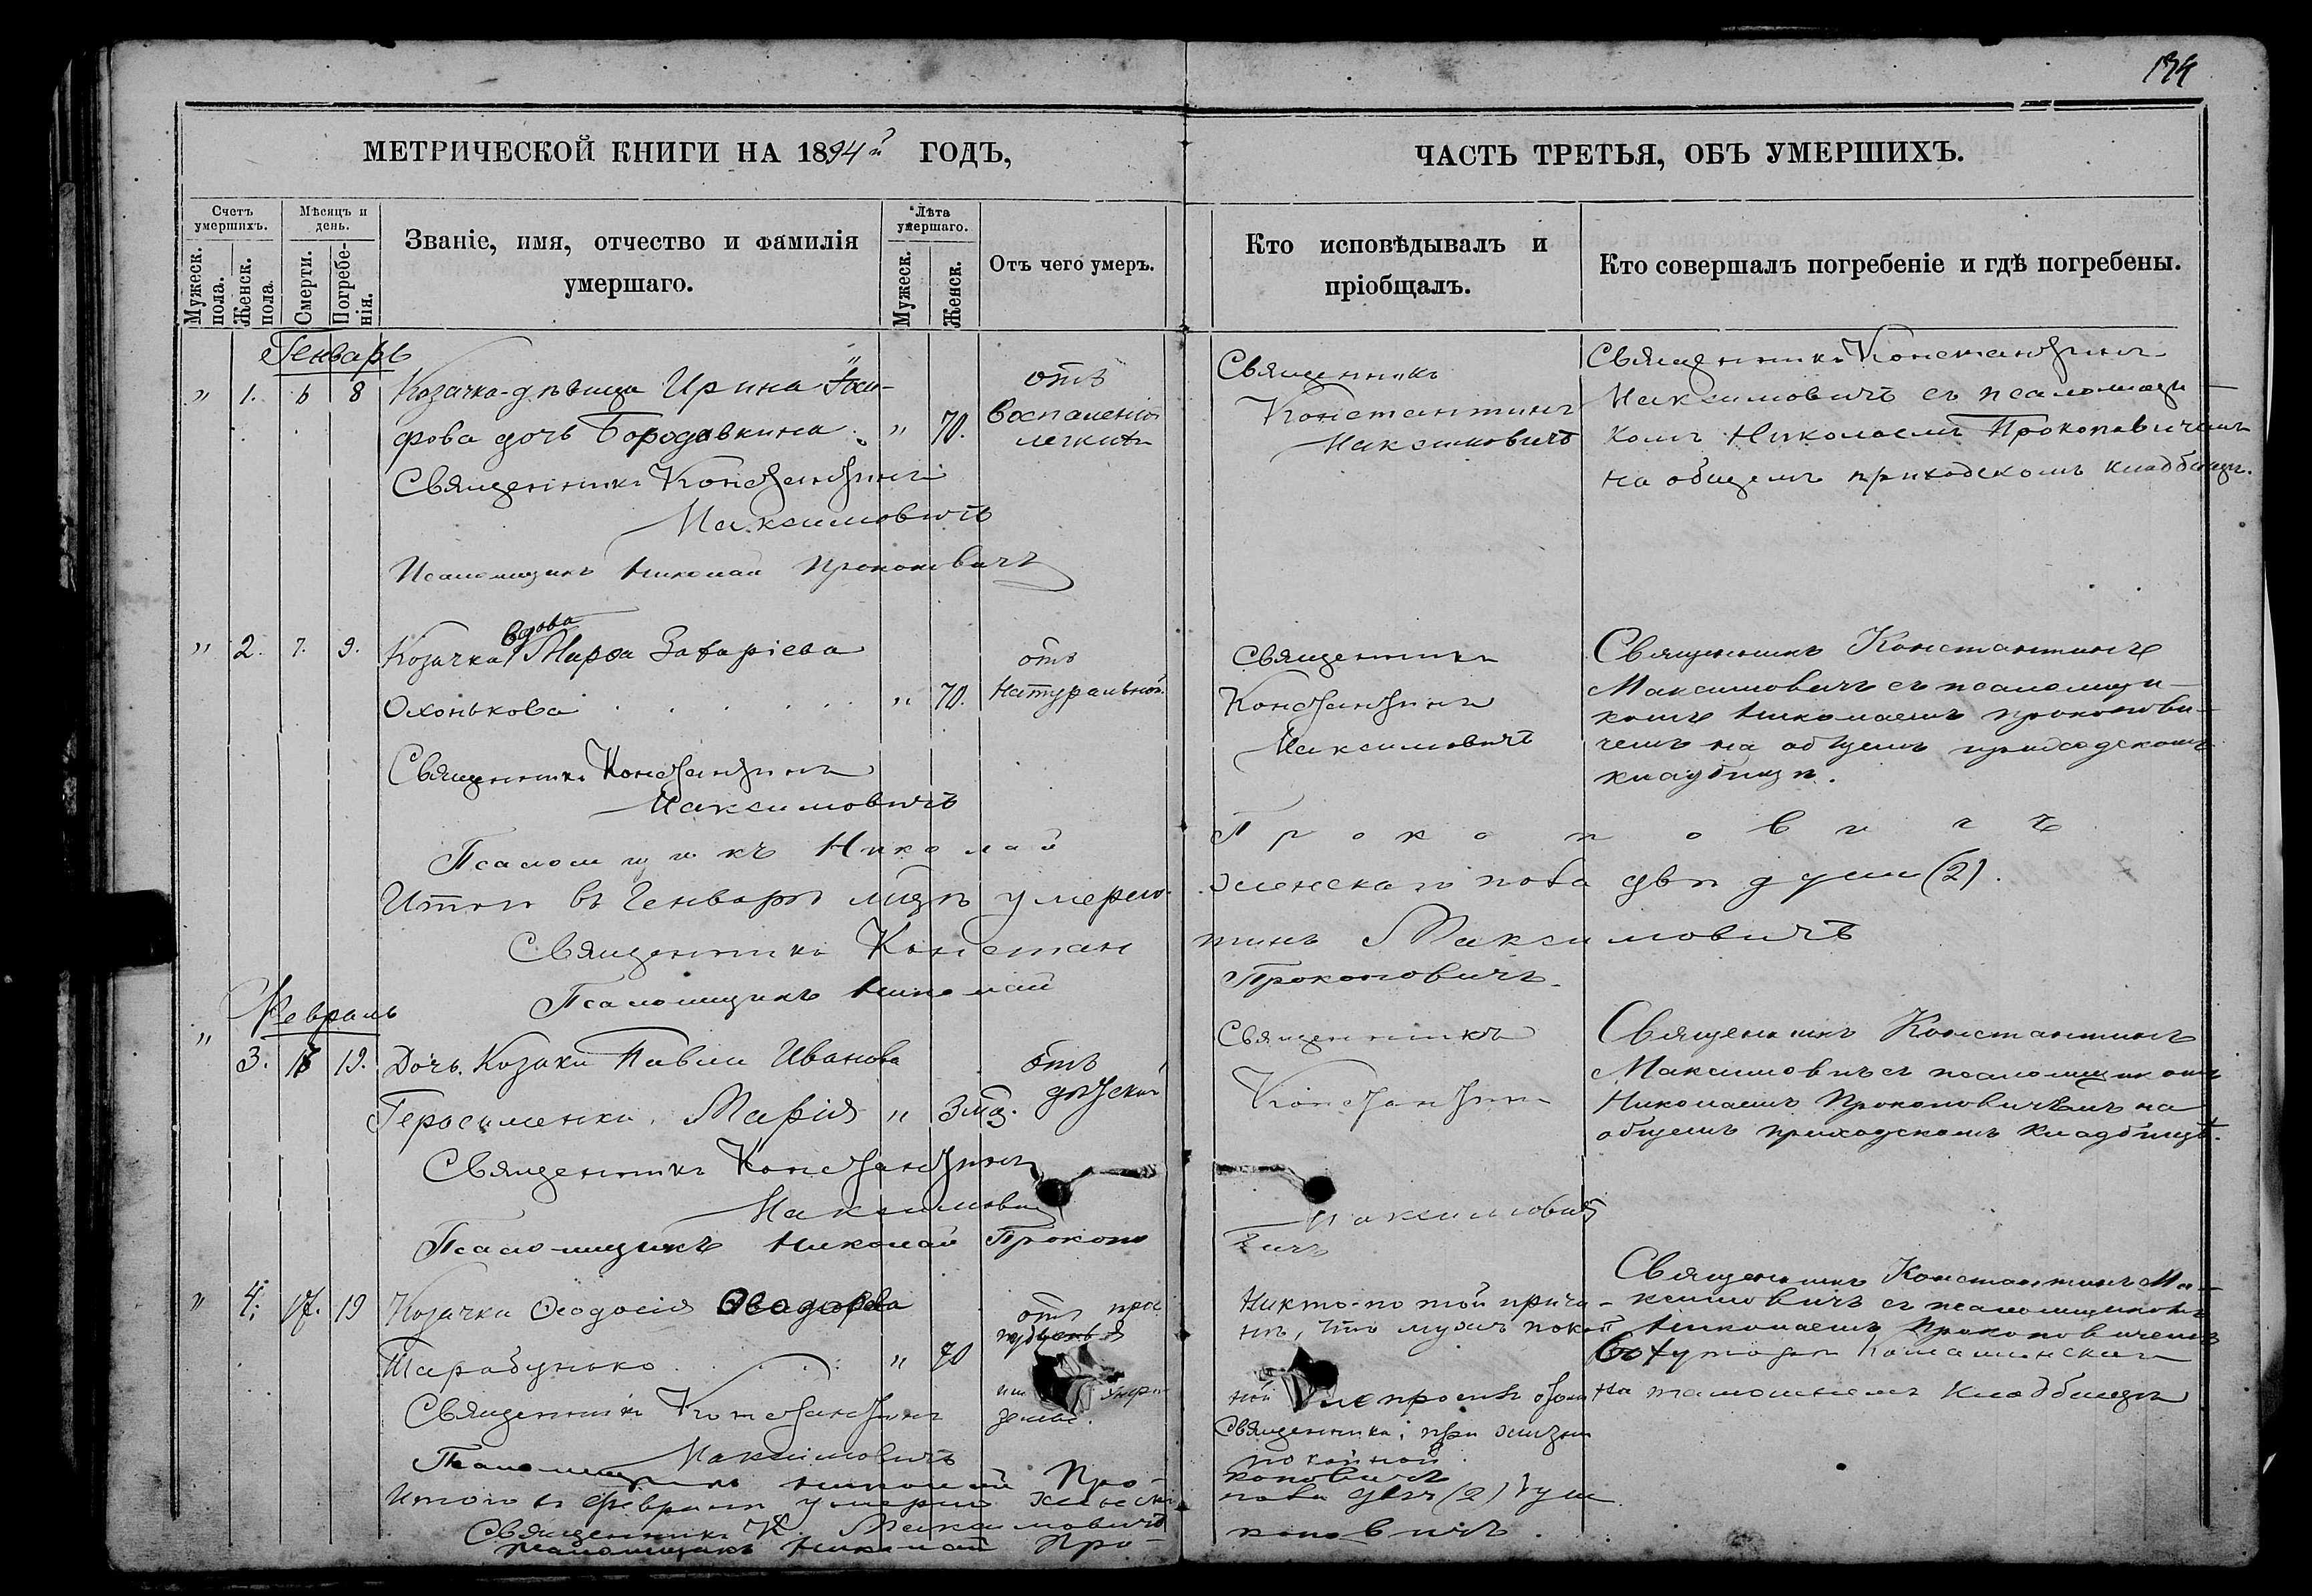 134
МЕТРИЧЕСКОЙ КНИГИ НА 1894й ГОДЪ,
Счетъ умершихъ.
Мужеск. пола.
Женск. пола.
Мѣсяцъ и день.
Смерти.
Погребенія.
Званіе, имя, отчество и фамилія
умершаго.
Лѣта умершаго.
Мужеск.
Женск.
Отъ чего умеръ.
Генварь
" 1. 6 8 Козачка-дѣвица Ирина
фова дочь Бородавкина " 70.
отъ
воспаленія
легкихъ
Священникъ Константинъ
Максимовичъ
Псаломщикъ Николай Прокоповичъ
вдова
" 2. 7. 9. Козачка Марѳа Захаріева
Охонькова " 70.
отъ
натуральной
Священникъ Константинъ
Максимовичъ
Псаломщикъ Николай
Итого въ Генварѣ мцѣ умерло
Священникъ Констан
Псаломщикъ Николай
Февраль
" 3. 19. Дочь Козака Павла Иванова
Герасименка Марія " 3 мц.
отъ
Священникъ Константинъ
Максимович
Псаломщикъ Николай Прокопо
" 4. 17. 19 Козачка Ѳеодосія Ѳеодорова
Тарабунько " 70
отъ
Священникъ Константинъ
Максимовичъ
Псаломщикъ Николай Про-
Итого въ Февралѣ умерло женска
Священникъ К. Максимовичъ
Псаломщикъ Николай Про-
ЧАСТЬ ТРЕТЬЯ, ОБЪ УМЕРШИХЪ.
Кто исповѣдывалъ и
пріобщалъ.
Кто совершалъ погребеніе и гдѣ погребены.
Священникъ
Константинъ
Максимовичъ
Священникъ Константинъ
Максимовичъ съ псаломщи-
комъ Николаемъ Прокоповичемъ
на общемъ приходскомъ кладбищѣ.
Священникъ
Константинъ
Максимовичъ
Священникъ Константинъ
Максимовичъ съ псаломщи-
комъ Николаемъ Прокопови-
чемъ на общемъ приходскомъ
кладбищѣ.
Прокоповичъ
женскаго пола двѣ души (2).
тинъ Максимовичъ
Прокоповичъ.
Священникъ
Константинъ
Максимовичъ
вичъ
Священникъ Константинъ
Максимовичъ съ псаломщикомъ
Николаемъ Прокоповичемъ на
общемъ приходскомъ кладбищѣ.
Никто-по той причи-
нѣ, что мужъ покой
ной не просилъ
Священника, при жизни
покойной.
коповичъ
пола двѣ (2) души.
коповичъ.
Священникъ Константинъ Ма-
ксимовичъ съ псаломщикомъ
Николаемъ Прокоповичемъ
на тамошнемъ кладбищѣ